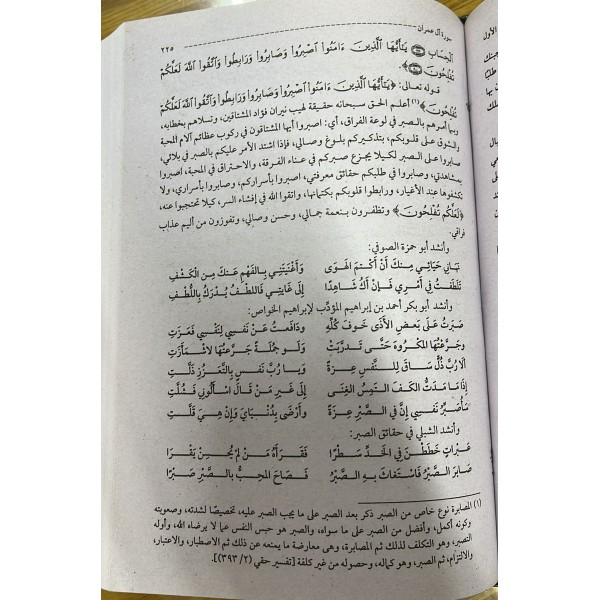 سورة آل عمران
٢٢٥
الْحِسَابِ ۝ يَٰٓأَيُّهَا الَّذِينَ ءَامَنُوا اصْبِرُوا وَصَابِرُوا وَرَابِطُوا وَاتَّقُوا اللَّهَ لَعَلَّكُمْ
تُفْلِحُونَ ۝﴾.
قوله تعالى: ﴿يَٰٓأَيُّهَا الَّذِينَ ءَامَنُوا اصْبِرُوا وَصَابِرُوا وَرَابِطُوا وَاتَّقُوا اللَّهَ لَعَلَّكُمْ
تُفْلِحُونَ﴾(١) أعلم الحق سبحانه حقيقة لهيب نيران فؤاد المشتاقين، وتسلاهم بخطابه،
وبما أمرهم بالصبر في لوعة الفراق، أي: اصبروا أيها المشتاقون في ركوب عظائم آلام المحبة
والشوق على قلوبكم، بتذكيركم بلوغ وصالي، فإذا اشتد الأمر عليكم بالصبر في بلائي،
صابروا على الصبر لكيلا يجزع صبركم في عناء الفرقة، والاحتراق في المحبة، اصبروا
بمشاهدتي، وصابروا في طلبكم حقائق معرفتي، اصبروا بأسراركم، وصابروا بأسراري، ولا
تكشفوها عند الأغيار، ورابطوا قلوبكم بكتمانها، واتقوا الله في إفشاء السر، كيلا تحتجبوا عنه،
﴿لَعَلَّكُمْ تُفْلِحُونَ﴾ وتظفرون بنعمة جمالي، وحسن وصالي، وتفوزون من أليم عذاب
فراقي.
وأنشد أبو حمزة الصوفي:
نَهَانِي حَيَائِي مِنكَ أَنْ أَكْتمَ الهَوَى وَأَغْنَيْتَنِي بِالفَهْمِ عَنكَ مِنَ الكَشْفِ
تَلَطَّفْتَ فِي أَمْرِي فَإِنْ أَكُ شَاهِدًا إِلَى غَايَتِي فَاللطْفُ يُدْرَكُ بِاللُّطْفِ
وأنشد أبو بكر أحمد بن إبراهيم المؤدِّب لإبراهيم الخواص:
صَبَرتُ عَلَى بَعضِ الأَذَى خَوفَ كُلِّهِ ودَافَعتُ عَنْ نَفسِي لِنَفْسِي فَعَزَّتِ
وجَرَّعتُهَا المَكْروهَ حَتَّى تَدرَّبَتْ وَلَو جُمْلَةً جَرعَّتُهَا لاشْمَأَزَّتِ
أَلَا رُبَّ ذُلٍّ سَاقَ لِلنَّفْسِ عِزةً وَيا رُبَّ نَفسٍ بِالتَّعَزُّزِ ذَلَّتِ
إِذَا مَا مَدَدتُ الكَفَّ التَمِسُ الغِنَى إِلَى غَيرِ مَنْ قَالَ اسْأَلُونِي فَشُلَّتِ
سَأَصْبِرُ نَفْسِي إِنَّ فِي الصَّبْرِ عِزةً وأَرْضَى بِدُنْيَايَ وَإِنْ هِيَ قَلَّتِ
وأنشد الشبلي في حقائق الصبر:
عَبرَاتٍ خَطَطْنَ فِي الخَدِّ سَطرًا فَقَرَأهُ مَنْ لَمْ يُحْسِنْ يَقْرَا
صَابَرَ الصَّبْرُ فَاسْتَغَاثَ بِهِ الصَّبْرُ فَصَاحَ المُحِبُّ بالصَّبْرِ صَبْرًا
(١) المصابرة نوع خاص من الصبر ذكر بعد الصبر على ما يجب الصبر عليه، تخصيصًا لشدته، وصعوبته
وكونه أكمل، وأفضل من الصبر على ما سواه، والصبر هو حبس النفس عما لا يرضاه الله، وأوله
التصبر، وهو التكلف لذلك ثم المصابرة، وهى معارضة ما يمنعه عن ذلك ثم الاصطبار، والاعتبار،
والالتزام، ثم الصبر، وهو كماله، وحصوله من غير كلفة [تفسير حقي (٢/ ٣٩٣)].